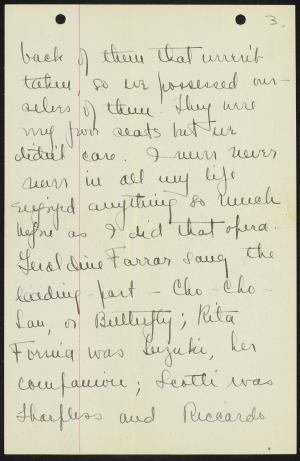 3.
back of them that weren't
taken, so we possessed our-
selves of them. They were
my poor seats but we
didn't care. I never never
never in all my life
enjoyed anything so much
before as I did that opera.
Geraldine Farrar sang the
leading part – Cho-Cho-
San, or Butterfly; Rita
Fornia was Suzuki, her
companion; Scotti was
Sharpless and Riccardo